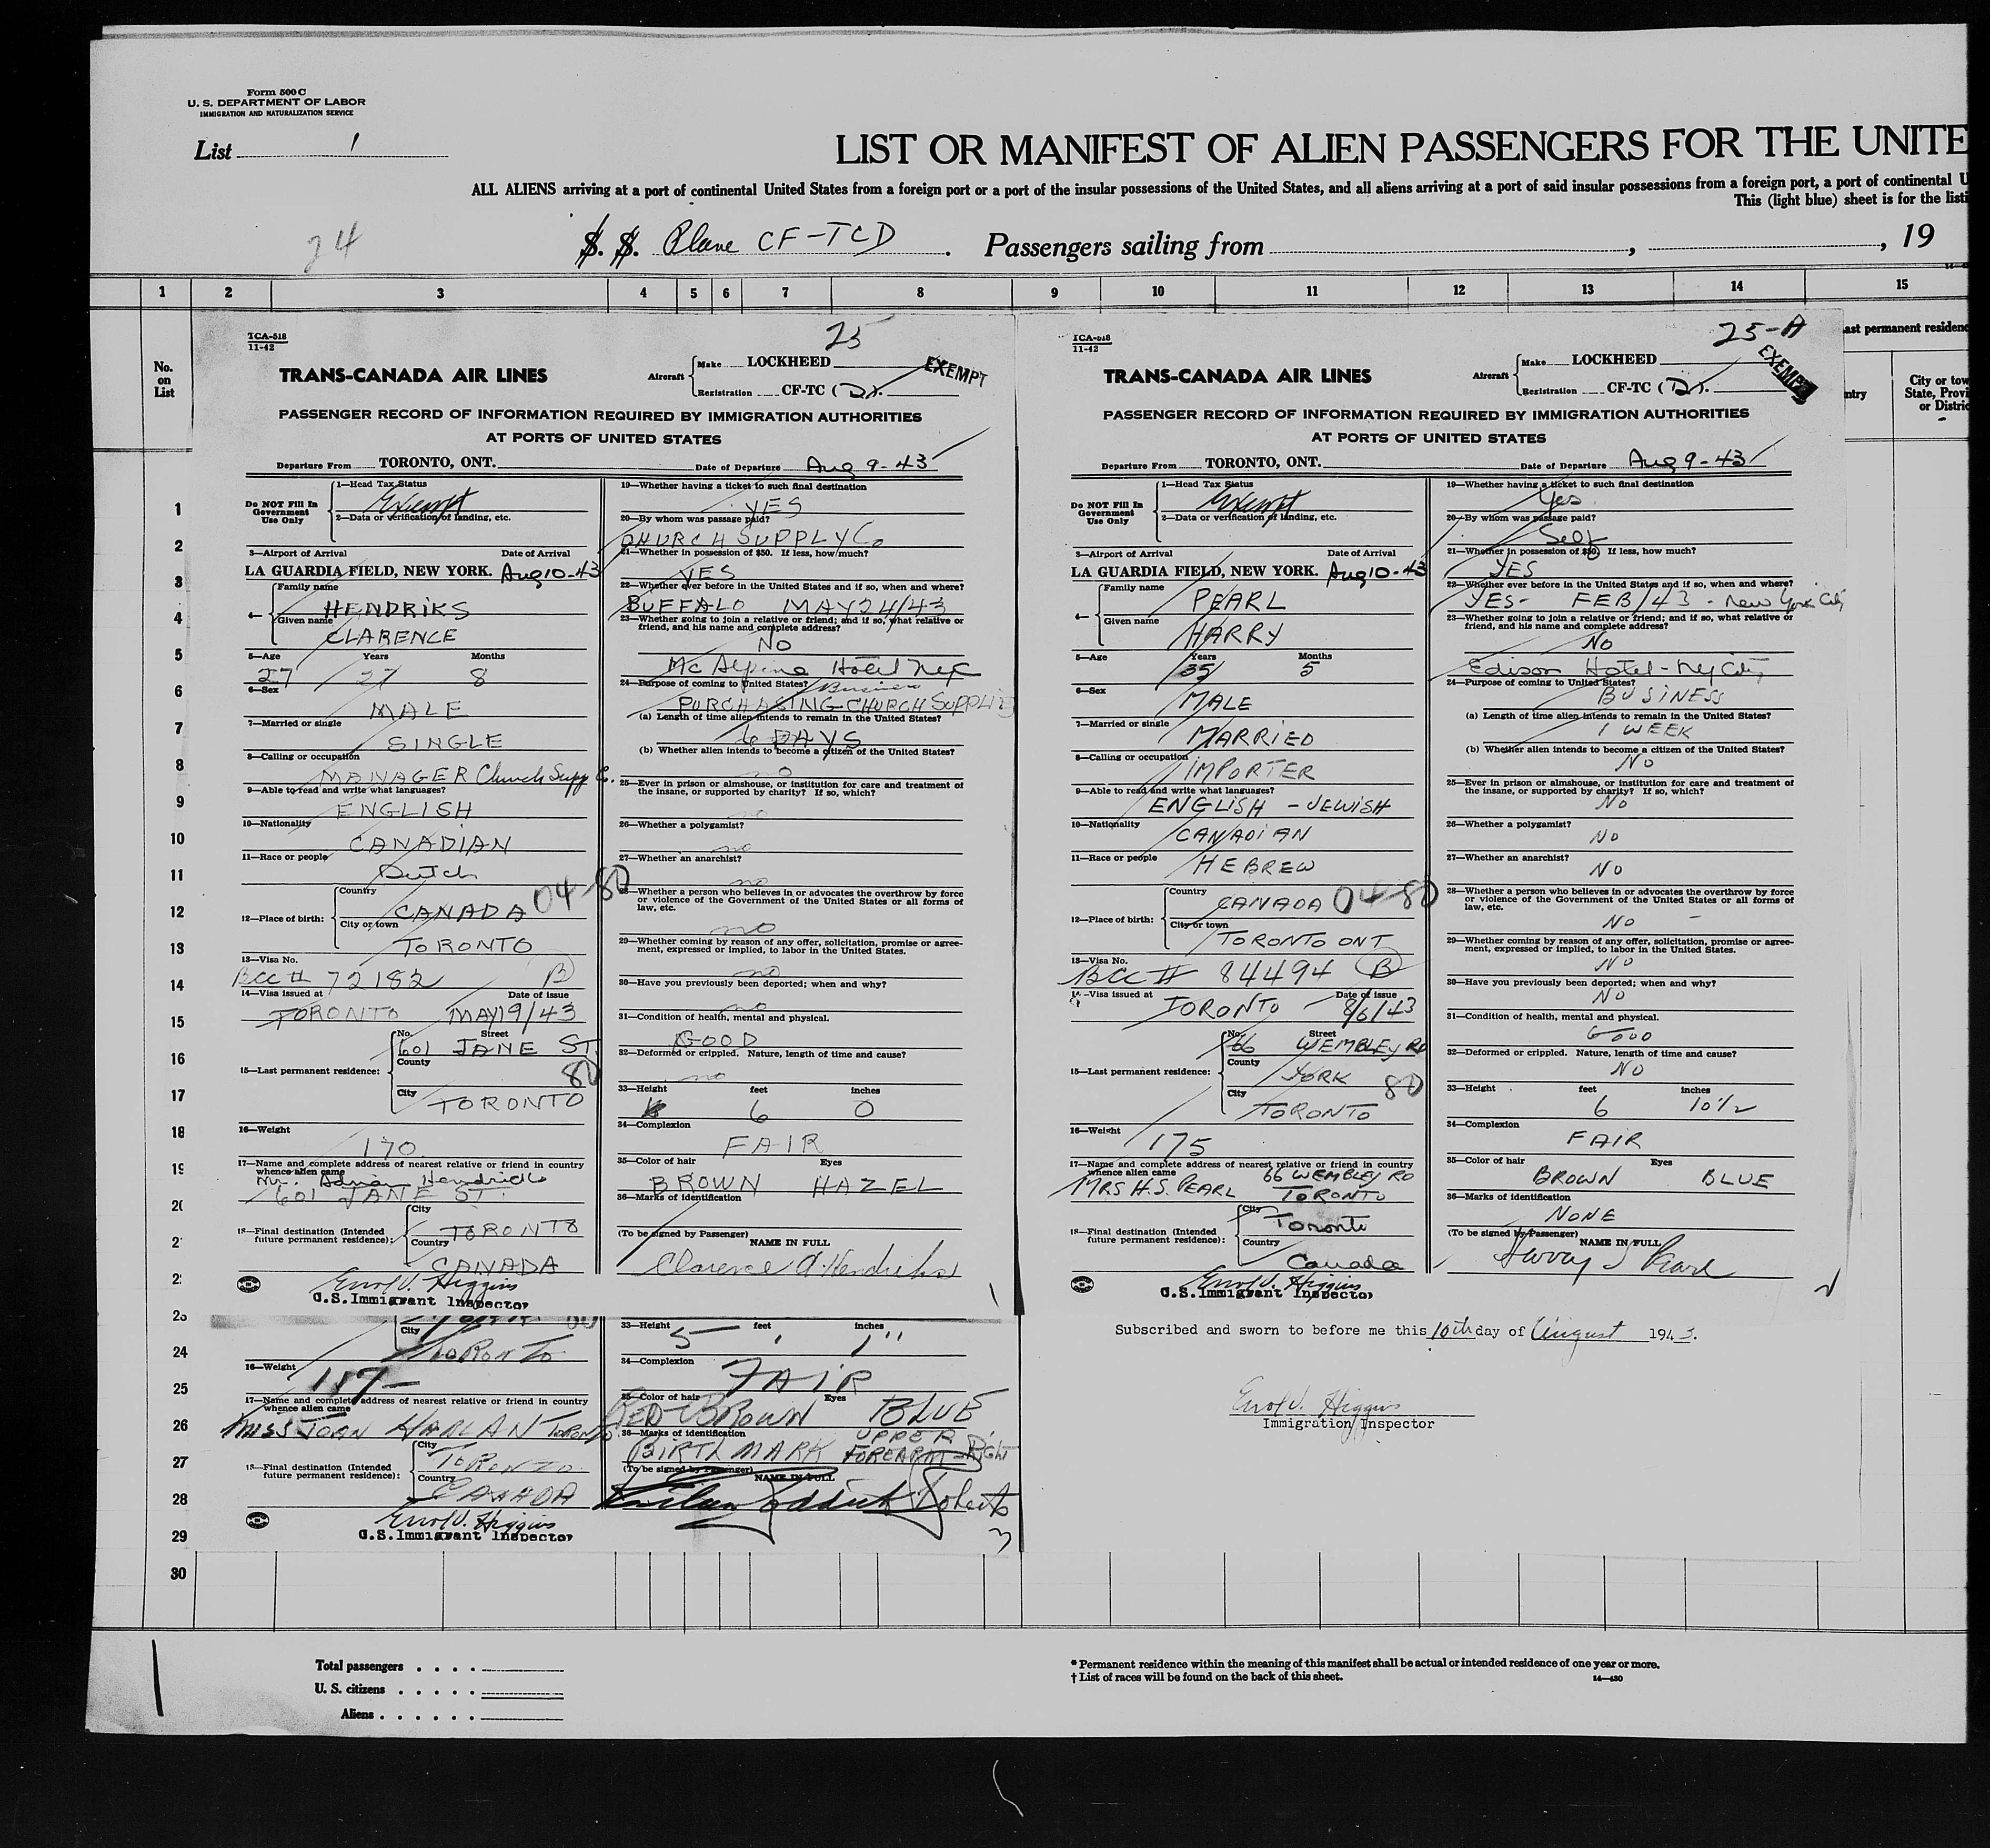 Form 500 C
U. S. DEPARTMENT OF LABOR
IMMIGRATION AND NATURALIZATION SERVICE
List 1
LIST OR MANIFEST OF ALIEN PASSENGERS FOR THE UNITE
ALL ALIENS arriving at a port of continental United States from a foreign port or a port of the insular possessions of the United States, and all aliens arriving at a port of said insular possessions from a foreign port, a port of continental U
This (light blue) sheet is for the listi
24
S. S. Plane CF-TCD. Passengers sailing from , , 19
1 2 3 4 5 6 7 8 9 10 11 12 13 14 15
No. on List
ast permanent residenc
ntry
City or tow
State, Provi
or Distric
1
2
3
4
5
6
7
8
9
10
11
12
13
14
15
16
17
18
19
20
2
2
23
24
25
26
27
28
29
30
TCA-518
11-42
25
TRANS-CANADA AIR LINES
Aircraft
Make LOCKHEED
Registration CF-TC (D).
EXEMPT
PASSENGER RECORD OF INFORMATION REQUIRED BY IMMIGRATION AUTHORITIES
AT PORTS OF UNITED STATES
Departure From TORONTO, ONT. Date of Departure Aug 9-43
Do NOT Fill In Government Use Only
1—Head Tax Status
Exempt
2—Data or verification of landing, etc.
3—Airport of Arrival Date of Arrival
LA GUARDIA FIELD, NEW YORK. Aug 10-43
4—
Family name
HENDRIKS
Given name
CLARENCE
5—Age Years Months
27 27 8
6—Sex
MALE
7—Married or single
SINGLE
8—Calling or occupation
MANAGER Church Supp Co.
9—Able to read and write what languages?
ENGLISH
10—Nationality
CANADIAN
11—Race or people
Dutch
12—Place of birth:
Country
CANADA 04-80
City or town
TORONTO
13—Visa No.
BCC # 72182 B
14—Visa issued at Date of issue
TORONTO MAY 19/43
15—Last permanent residence:
No. Street
601 JANE ST.
County
80
City
TORONTO
16—Weight
170
17—Name and complete address of nearest relative or friend in country
whence alien came
Mr. Adrian Hendriks
601 JANE ST.
18—Final destination (Intended
future permanent residence):
City
TORONTO
Country
CANADA
Errol V. Higgins
U.S. Immigrant Inspector
19—Whether having a ticket to such final destination
YES
20—By whom was passage paid?
CHURCH SUPPLY Co
21—Whether in possession of $50. If less, how much?
YES
22—Whether ever before in the United States and if so, when and where?
BUFFALO MAY 24/43
23—Whether going to join a relative or friend; and if so, what relative or
friend, and his name and complete address?
No
Mc Alpine Hotel NYC
24—Purpose of coming to United States?
Business
PURCHASING CHURCH SUPPLIES
(a) Length of time alien intends to remain in the United States?
6 DAYS
(b) Whether alien intends to become a citizen of the United States?
no
25—Ever in prison or almshouse, or institution for care and treatment of
the insane, or supported by charity? If so, which?
no
26—Whether a polygamist?
no
27—Whether an anarchist?
no
28—Whether a person who believes in or advocates the overthrow by force
or violence of the Government of the United States or all forms of
law, etc.
no
29—Whether coming by reason of any offer, solicitation, promise or agree-
ment, expressed or implied, to labor in the United States.
no
30—Have you previously been deported; when and why?
no
31—Condition of health, mental and physical.
GOOD
32—Deformed or crippled. Nature, length of time and cause?
no
33—Height feet inches
6 0
34—Complexion
FAIR
35—Color of hair Eyes
BROWN HAZEL
36—Marks of identification
(To be signed by Passenger) NAME IN FULL
Clarence A Hendriks
1
TCA-518
11-42
25-A
TRANS-CANADA AIR LINES
Aircraft
Make LOCKHEED
Registration CF-TC (D).
EXEMPT
PASSENGER RECORD OF INFORMATION REQUIRED BY IMMIGRATION AUTHORITIES
AT PORTS OF UNITED STATES
Departure From TORONTO, ONT. Date of Departure Aug 9-43
Do NOT Fill In Government Use Only
1—Head Tax Status
Exempt
2—Data or verification of landing, etc.
3—Airport of Arrival Date of Arrival
LA GUARDIA FIELD, NEW YORK. Aug 10-43
4—
Family name
PEARL
Given name
HARRY
5—Age Years Months
35 5
6—Sex
MALE
7—Married or single
MARRIED
8—Calling or occupation
IMPORTER
9—Able to read and write what languages?
ENGLISH - JEWISH
10—Nationality
CANADIAN
11—Race or people
HEBREW
12—Place of birth:
Country
CANADA 04-80
City or town
TORONTO ONT
13—Visa No.
BCC # 84494 B
14—Visa issued at Date of issue
TORONTO - 8/6/43
15—Last permanent residence:
No. Street
66 WEMBLEY RD
County
YORK 80
City
TORONTO
16—Weight
175
17—Name and complete address of nearest relative or friend in country
whence alien came 66 WEMBLEY RD
MRS H.S. PEARL TORONTO
18—Final destination (Intended
future permanent residence):
City
Toronto
Country
Canada
Errol V. Higgins
U.S. Immigrant Inspector
19—Whether having a ticket to such final destination
Yes
20—By whom was passage paid?
Self
21—Whether in possession of $50. If less, how much?
YES
22—Whether ever before in the United States and if so, when and where?
YES- FEB/43 - New York City
23—Whether going to join a relative or friend; and if so, what relative or
friend, and his name and complete address?
No
Edison Hotel - NY City
24—Purpose of coming to United States?
BUSINESS
(a) Length of time alien intends to remain in the United States?
1 WEEK
(b) Whether alien intends to become a citizen of the United States?
No
25—Ever in prison or almshouse, or institution for care and treatment of
the insane, or supported by charity? If so, which?
No
26—Whether a polygamist?
No
27—Whether an anarchist?
No
28—Whether a person who believes in or advocates the overthrow by force
or violence of the Government of the United States or all forms of
law, etc.
No
29—Whether coming by reason of any offer, solicitation, promise or agree-
ment, expressed or implied, to labor in the United States.
No
30—Have you previously been deported; when and why?
No
31—Condition of health, mental and physical.
GOOD
32—Deformed or crippled. Nature, length of time and cause?
No
33—Height feet inches
6 10 1/2
34—Complexion
FAIR
35—Color of hair Eyes
BROWN BLUE
36—Marks of identification
NONE
(To be signed by Passenger) NAME IN FULL
Harry S Pearl
2
City
TORONTO
16—Weight
117-
17—Name and complete address of nearest relative or friend in country
whence alien came
MISS JOAN HARLAN TORONTO
18—Final destination (Intended
future permanent residence):
City
TORONTO
Country
CANADA
Errol V. Higgins
U.S. Immigrant Inspector
33—Height feet inches
5' 1"
34—Complexion
FAIR
35—Color of hair Eyes
RED BROWN BLUE
36—Marks of identification
UPPER
BIRTH MARK FOREARM Right
(To be signed by Passenger) NAME IN FULL
Roberts
3
Subscribed and sworn to before me this 10th day of August 1943.
Errol V. Higgins
Immigration Inspector
Total passengers
U. S. citizens
Aliens
* Permanent residence within the meaning of this manifest shall be actual or intended residence of one year or more.
† List of races will be found on the back of this sheet.
14—430